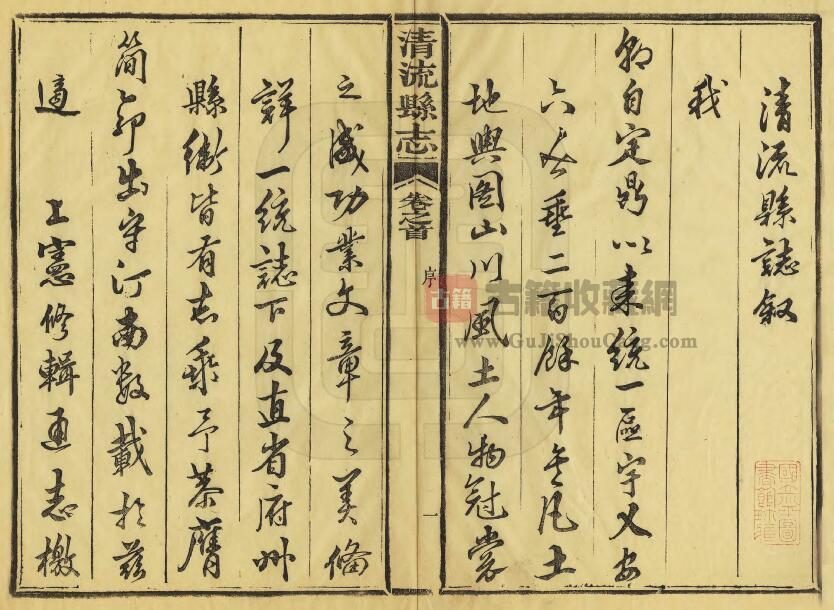 清流縣誌叙
我
朝自定鼎以来統一區宇乂安
六合垂二百餘年矣凡土
地輿圖山川風土人物冠裳
清流縣志 卷之首 序 一
之盛功業文章之美俻
詳一統誌下及直省府州
縣衛皆有志乘予恭膺
簡命出守汀南數載於茲
適 上憲修輯通志檄
古籍
古籍收藏網
www.GuJiShouCang.com